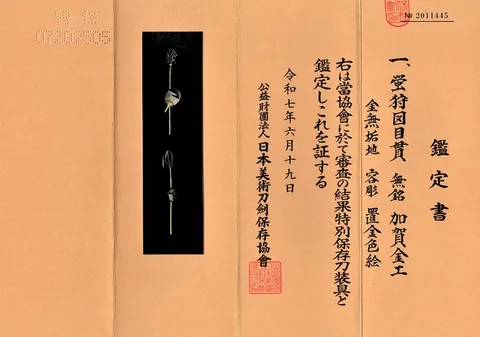 № 2011445
鑑定書
一、蛍狩図目貫 無銘 加賀金工
金無垢地 容彫 置金色絵
右は當協會に於て審査の結果特別保存刀装具と
鑑定しこれを証する
令和七年六月十九日
公益財團法人 日本美術刀劍保存協會